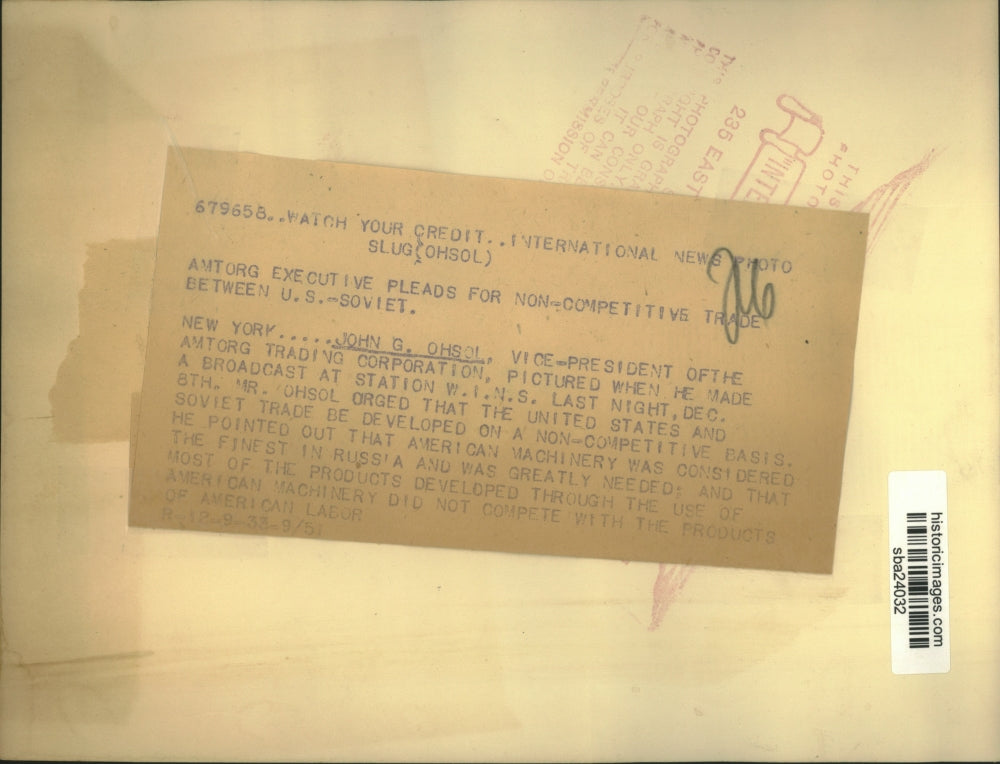 679658..WATCH YOUR CREDIT..INTERNATIONAL NEWS PHOTO
SLUG(OHSOL)
AMTORG EXECUTIVE PLEADS FOR NON-COMPETITIVE TRADE
BETWEEN U.S.-SOVIET.
NEW YORK.....JOHN G. OHSOL, VICE-PRESIDENT OFTHE
AMTORG TRADING CORPORATION, PICTURED WHEN HE MADE
A BROADCAST AT STATION W.I.N.S. LAST NIGHT, DEC.
8TH. MR. OHSOL ORGED THAT THE UNITED STATES AND
SOVIET TRADE BE DEVELOPED ON A NON-COMPETITIVE BASIS.
HE POINTED OUT THAT AMERICAN MACHINERY WAS CONSIDERED
THE FINEST IN RUSSIA AND WAS GREATLY NEEDED; AND THAT
MOST OF THE PRODUCTS DEVELOPED THROUGH THE USE OF
AMERICAN MACHINERY DID NOT COMPETE WITH THE PRODUCTS
OF AMERICAN LABOR
R-12-9-33-9/51
235 EAST
THIS
PHOTO
historicimages.com
sba24032